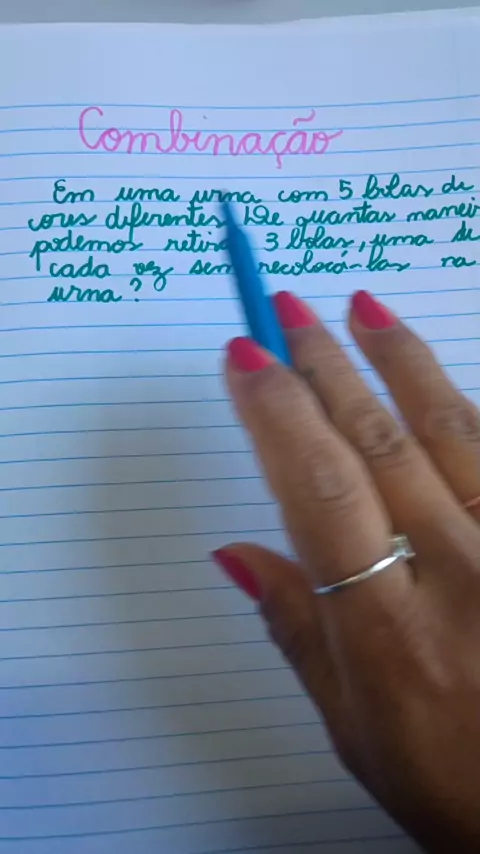 Combinação
Em uma urna com 5 bolas de
cores diferentes. De quantas manei
podemos retira 3 bolas, uma de
cada vez sem recolocá-las na
urna?